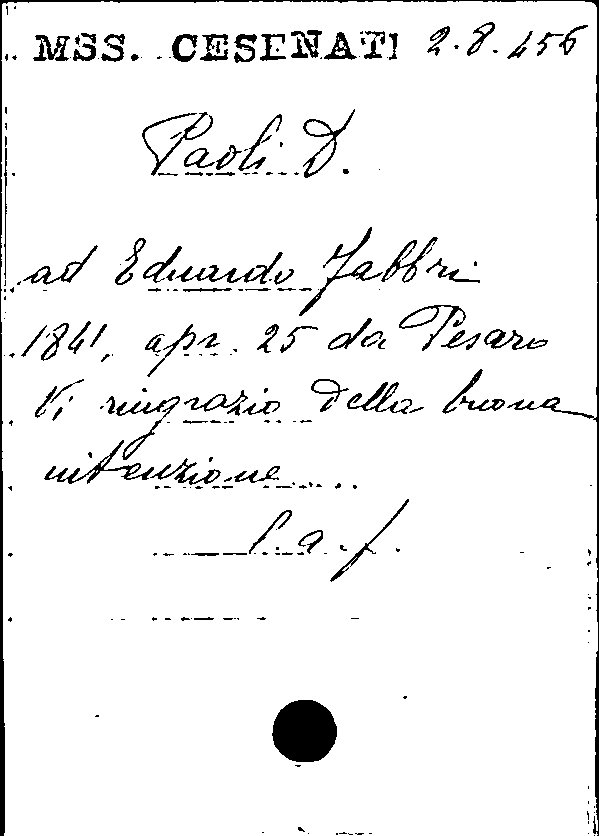 MSS. CESENATI 2.8.456
Paoli D.
ad Eduardo Fabbri
1841, apr. 25 da Pesaro
Vi ringrazio della buona
intenzione...
l. a. f.